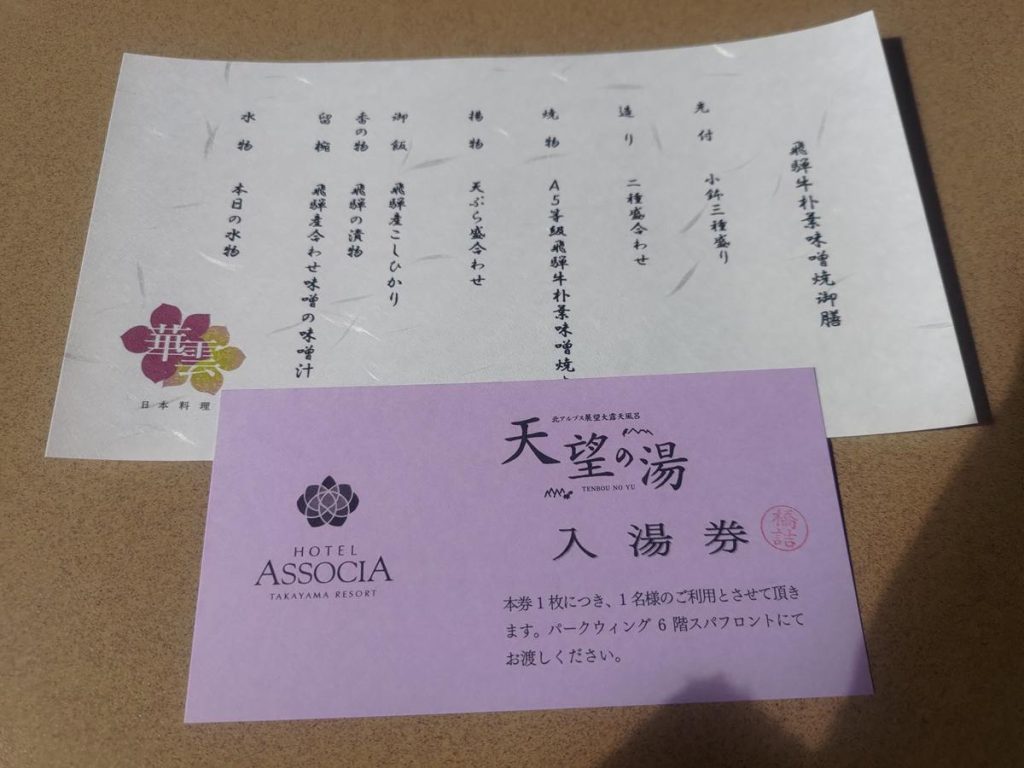 飛騨牛朴葉味噌焼御膳
先付 小鉢三種盛り
造り 二種盛合わせ
焼物 A5等級飛騨牛朴葉味噌焼
揚物 天ぷら盛合わせ
御飯 飛騨産こしひかり
香の物 飛騨の漬物
留椀 飛騨産合わせ味噌の味噌汁
水物 本日の水物
華雲
日本料理
HOTEL
ASSOCIA
TAKAYAMA RESORT
北アルプス展望大露天風呂
天望の湯
TENBOU NO YU
入湯券
橋詰
本券1枚につき、1名様のご利用とさせて頂き
ます。パークウィング6階スパフロントにて
お渡しください。